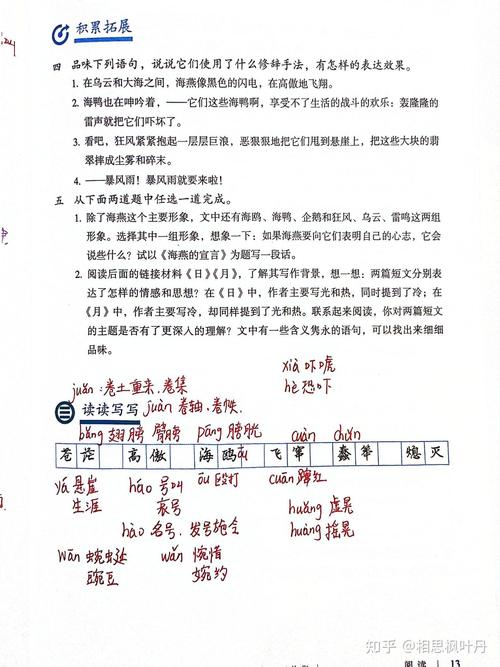 积累拓展
四 品味下列语句，说说它们使用了什么修辞手法，有怎样的表达效果。
1. 在乌云和大海之间，海燕像黑色的闪电，在高傲地飞翔。
2. 海鸭也在呻吟着，——它们这些海鸭啊，享受不了生活的战斗的欢乐：轰隆隆的
雷声就把它们吓坏了。
3. 看吧，狂风紧紧抱起一层层巨浪，恶狠狠地把它们甩到悬崖上，把这些大块的翡
翠摔成尘雾和碎末。
4. ——暴风雨！暴风雨就要来啦！
五 从下面两道题中任选一道完成。
1. 除了海燕这个主要形象，文中还有海鸥、海鸭、企鹅和狂风、乌云、雷鸣这两组
形象。选择其中一组形象，想象一下：如果海燕要向它们表明自己的心志，它会
说些什么？试以《海燕的宣言》为题写一段话。
2. 阅读后面的链接材料《日》《月》，了解其写作背景，想一想：两篇短文分别表
达了怎样的情感和思想？在《日》中，作者主要写光和热，同时提到了冷；在
《月》中，作者主要写冷，却同样提到了光和热。联系起来阅读，你对两篇短文
的主题是否有了更深入的理解？文中有一些含义隽永的语句，可以找出来细细
品味。
xià 吓唬
juǎn：卷土重来、卷集 hè 恐吓
读读写写 juàn 卷轴、卷帙
bǎng 翅膀 臂膀 páng 膀胱 cuàn chǔn
苍茫 高傲 海鸥 飞窜 蠢笨 熄灭
yá 悬崖 háo 号叫 ōu 殴打 cuān 蹿红
生涯 哀号 huǎng 虚晃
hào 名号、发号施令 huàng 摇晃
wān 蜿蜒 wǎn 惋惜
豌豆 婉约
阅读 13
知乎 @相思枫叶丹